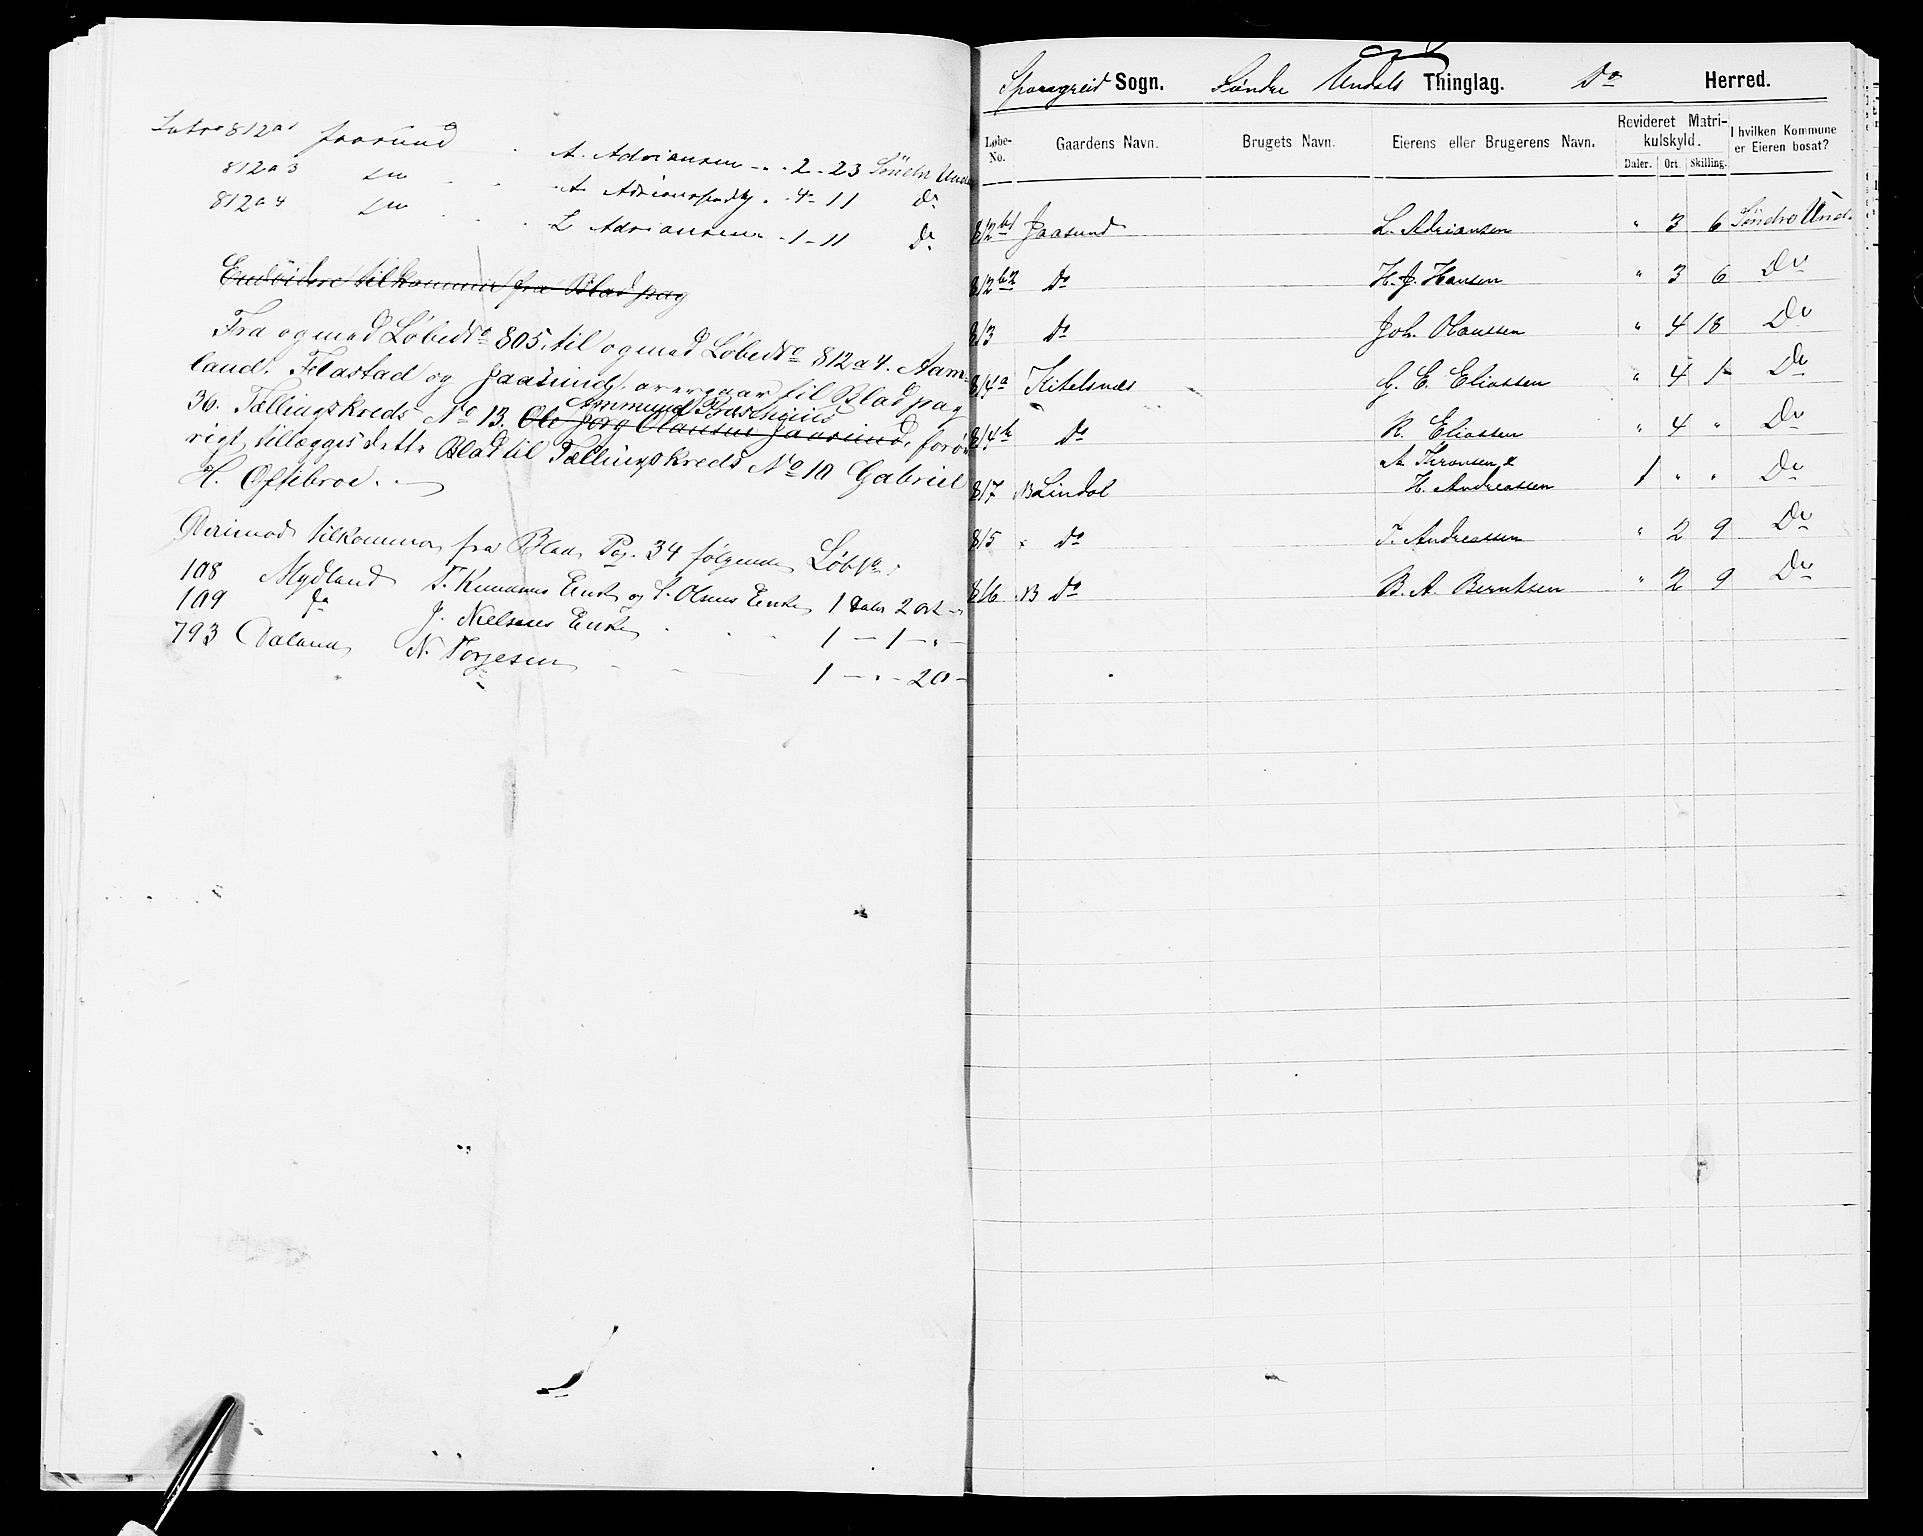 812a1 Jaasund A. Adriansen 2 - 23 Søndre Undal
812a3 Do A. Adriansen 4 - 11 Do
812a4 Do L. Adriansen 1 - 11 Do
Endvidere tilkommer fra Blad pag
Fra og med Løbe No 805 til og med Løbe No 812a4. Aam-
land, Flastad og Jaasund, overgaar til Blad pag
36. Tællingskreds No 13. Ole Jørg Olausen Jaasund, forøv-
rigt tillægges dette Blad til Tællingskreds No 10 Gabriel
H. Øftebroe.
Derimod tilkommer fra Blad Pag. 34 følgende Løb No:
108 Mydland T. Enke og S. Olsens Enke 1 Daler 2 ort
109 Do J. Nielsens Enke 1 - 1 -
793 Daland N. Torjesen 1 - " - 20 -
Spangreid Sogn. Søndre Undals Thinglag. Do Herred.
Løbe-No. Gaardens Navn. Brugets Navn. Eierens eller Brugerens Navn. Revideret Matri-kulskyld. Daler. Ort. Skilling. I hvilken Kommune er Eieren bosat?
812b1 Jaasund L. Adriansen " 3 6 Søndre Und.
812b2 Do H. J. Hansen " 3 6 Do
813 Do Joh. Olaussen " 4 18 Do
814a Kitelsnæs G. E. Eliassen " 4 1 Do
814b Do R. Eliassen " 4 " Do
817 Lindal A. &
H. Andreassen 1 " " Do
815 Do T. Andreassen " 2 9 Do
816 B Do B. A. Berntsen " 2 9 Do